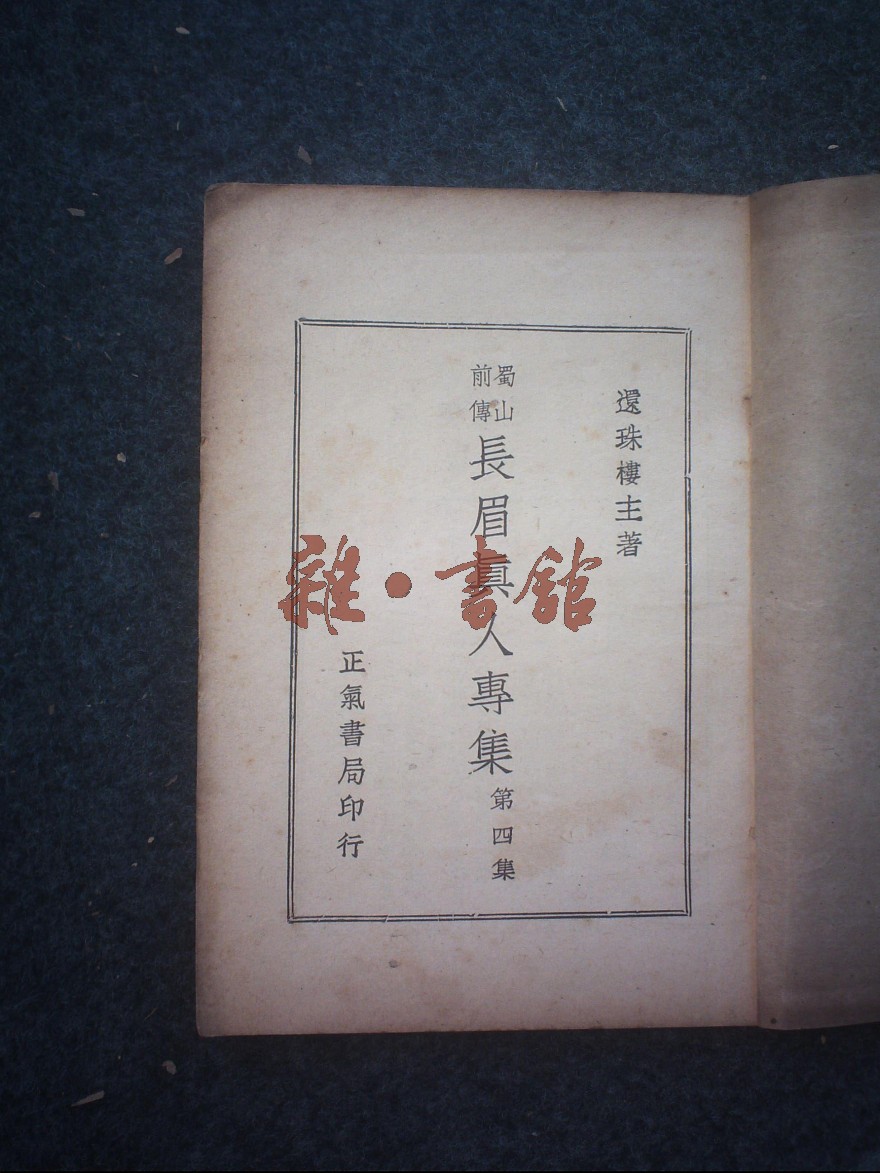 還珠樓主著
蜀山
前傳
長眉真人專集
第四集
正氣書局印行
雜·書館